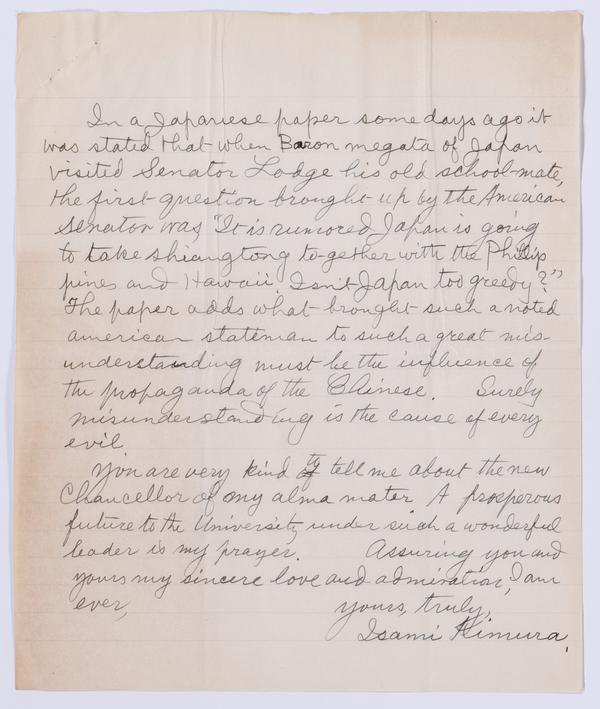 In a Japanese paper some days ago it
was stated that when Baron megata of Japan
visited Senator Lodge his old school-mate,
the first question brought up by the American
Senator was "It is rumored Japan is going
to take shiangtong to-gether with the Philip
pines and Hawaii. Isn't Japan too greedy?"
The paper adds what brought such a noted
american stateman to such a great mis-
understanding must be the influence of
the propaganda of the Chinese. Surely
misunderstanding is the cause of every
evil
You are very kind to tell me about the new
Chancellor of my alma mater. A prosperous
future to the University under such a wonderful
leader is my prayer. Assuring you and
yours my sincere love and admiration, I am
ever, yours, truly,
Isami Kimura,